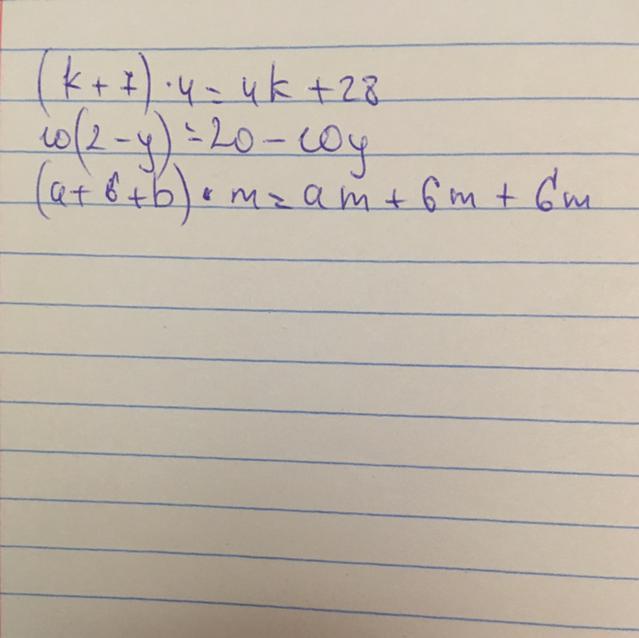 (k+7)·4=4k+28
10(2-y)=20-10y
(a+6+b)·m=am+6m+bm